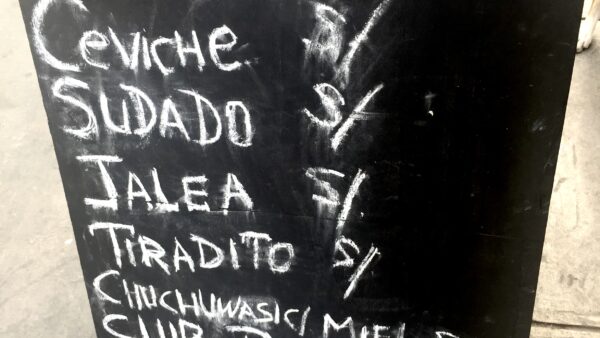 CEVICHE S/
SUDADO S/
JALEA S/
TIRADITO S/
CHUCHUWASIC/ MIEL
CLUB